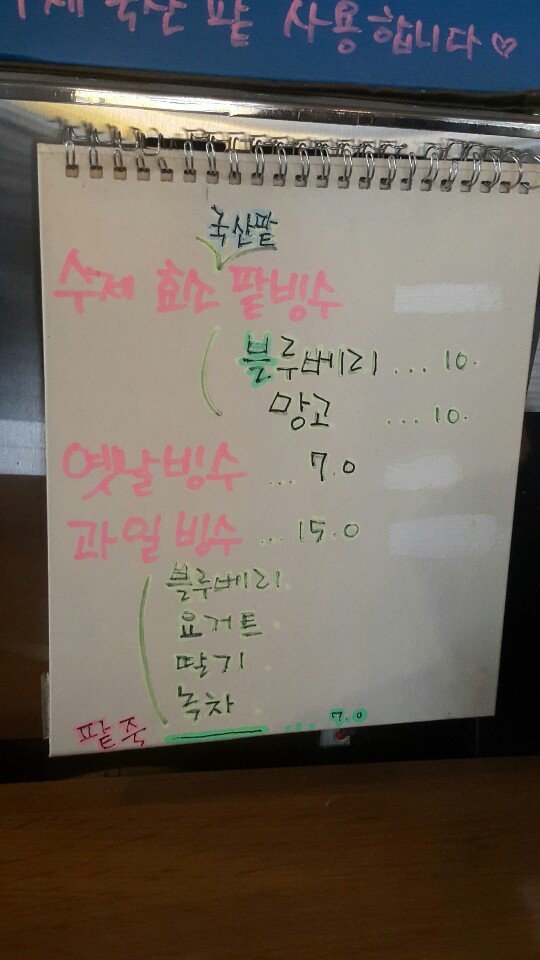 수제 국산 팥 사용합니다♡
국산팥
수제 효소 팥빙수
블루베리 ... 10.
망고 ... 10.
옛날빙수 ... 7.0
과일빙수 ... 15.0
블루베리
요거트
딸기
녹차
팥죽 ... 7.0